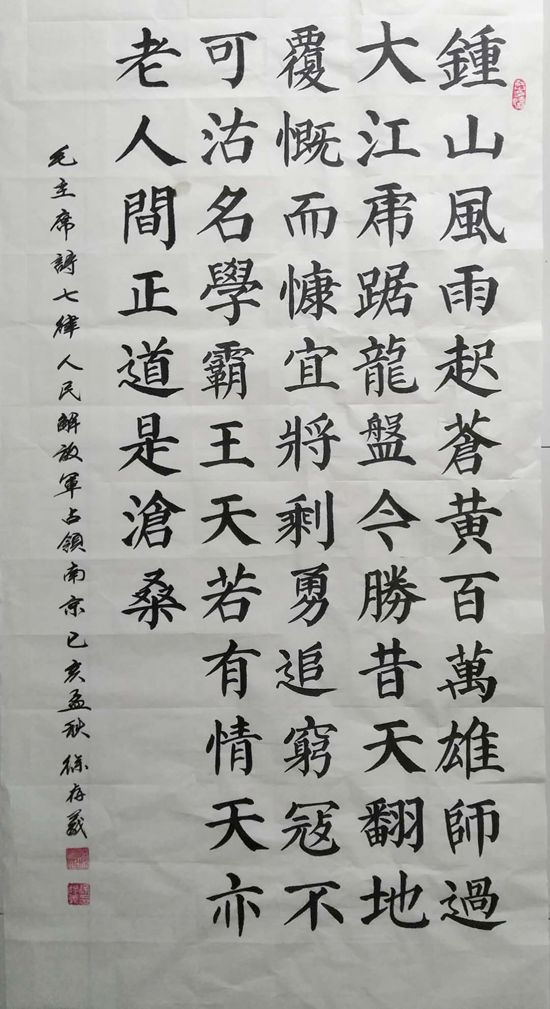 鍾山風雨起蒼黃百萬雄師過
大江虎踞龍盤今勝昔天翻地
覆慨而慷宜將剩勇追窮寇不
可沽名學霸王天若有情天亦
老人間正道是滄桑
毛主席詩七律人民解放軍占領南京己亥孟秋徐存義